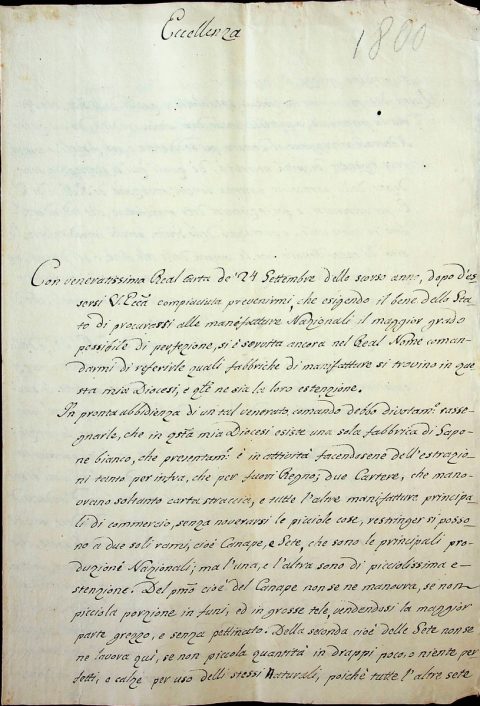 Eccellenza
1800
Con veneratissima Real Carta de' 24 Settembre dello scorso anno, dopo d'es
sersi V. Ecc̃a compiaciuta prevenirmi, che esigendo il bene dello Sta
to di procurarsi alle manifatture Nazionali il maggior grado
possibile di perfezione, si è servita ancora nel Real Nome coman
darmi di referirle quali fabbriche di manifatture si trovino in que
sta mia Diocesi, e qtẽ ne sia la loro estenzione.
In pronta ubbidienza di un tal venerato comando debbo divotamẽ rasse
gnarle, che in qstã mia Diocesi esiste una sola fabbrica di Sapo
ne bianco, che presentamẽ è in attività facendosene dell'estragio
ni tanto per infra, che per fuori Regno; due Cartere, che mano
vrano soltanto carta straccia, e tutte l'altre manifatture principa
li di commercio, senza noverarsi le picciole cose, restringer si posso
no a due soli rami, cioè Canape, e Sete, che sono le principali pro
duzioni Nazionali; ma l'una, e l'altra sono di picciolissima e
stenzione. Del pm̃o cioè del Canape non se ne manovra, se non
picciola porzione in funi, ed in grosse tele, vendendosi la maggior
parte grezzo, e senza pettinato. Della seconda cioè delle Sete non se
ne lavora quì, se non piccola quantità in drappi poco, o niente per
fetti, o calze per uso delli stessi Naturali, poichè tutte l'altre sete